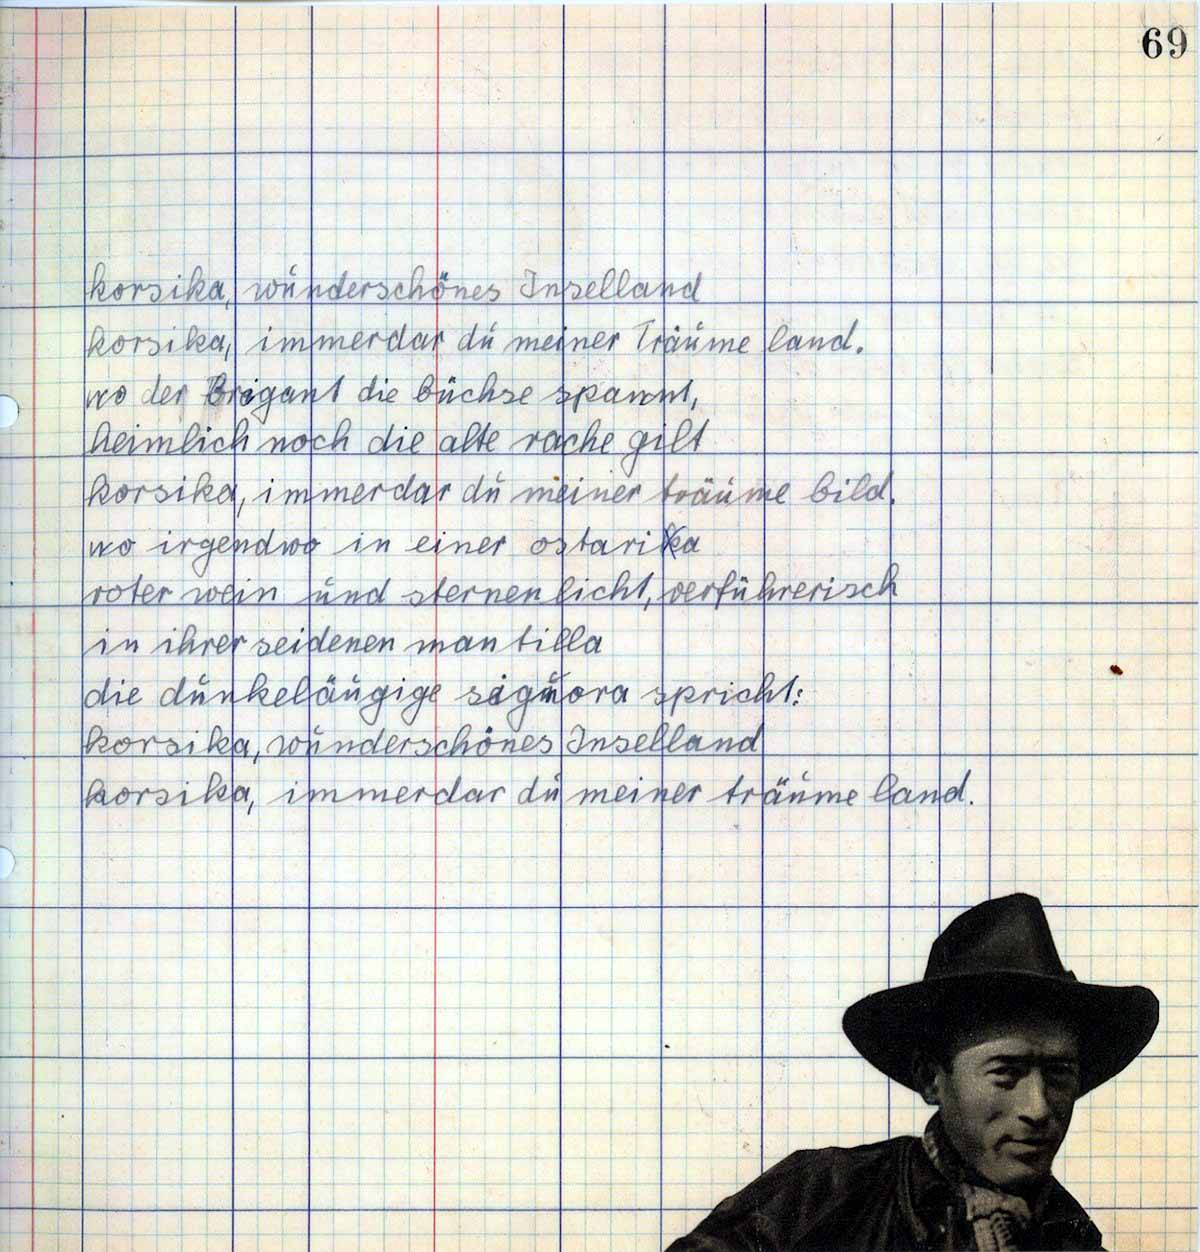 69
korsika, wunderschönes Inselland
korsika, immerdar du meiner Träume land.
wo der Brigant die büchse spannt,
heimlich noch die alte rache gilt
korsika, immerdar du meiner träume bild.
wo irgendwo in einer ostarika
roter wein und sternenlicht, verführerisch
in ihrer seidenen mantilla
die dunkeläugige signora spricht:
korsika, wunderschönes Inselland
korsika, immerdar du meiner träume land.